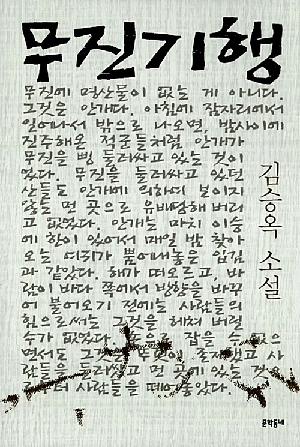 무진기행
무진에 명산물이 없는 게 아니다.
그것은 안개다. 아침에 잠자리에서
일어나서 밖으로 나오면, 밤사이에
진주해온 적군들처럼 안개가
무진을 삥 둘러싸고 있는 것이
었다. 무진을 둘러싸고 있던
산들도 안개에 의하여 보이지
않는 먼 곳으로 유배당해 버리
고 없었다. 안개는 마치 이승
에 한이 있어서 매일 밤 찾아
오는 여귀가 뿜어내놓은 입김
과 같았다. 해가 떠오르고, 바
람이 바다 쪽에서 방향을 바꾸
어 불어오기 전에는 사람들의
힘으로써는 그것을 헤쳐 버릴
수가 없었다. 손으로 잡을 수 없으
면서도 그것은 존재했고 사
람들을 둘러쌌고 먼 곳에 있는 것으
로부터 사람들을 떼어놓았다.
김승옥 소설
문학동네